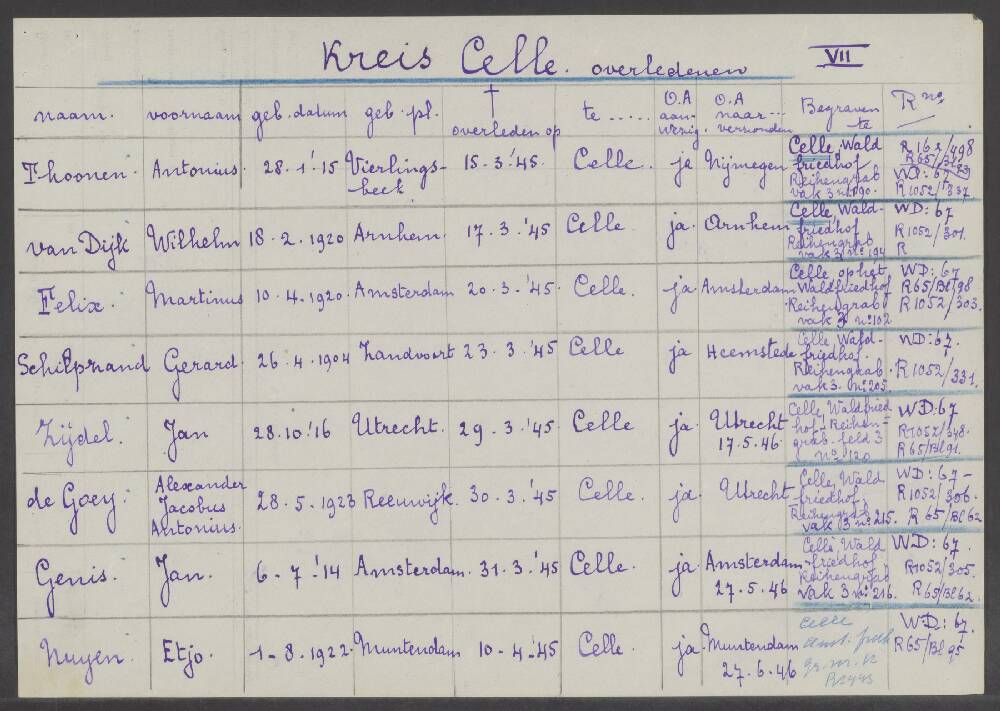 Kreis Celle. overledenen VII
naam. voornaam geb. datum geb. pl. † overleden op te ..... O.A aan- wezig. O.A naar... verzonden Begraven te R no.
Thoonen. Antonius. 28.1.'15 Vierlings- beek 15.3.'45. Celle. ja Nijmegen Celle, Wald friedhof Reihengrab vak 3 no 190. R 162/498 R65/ WD: 67 R1052/337
van Dijk Wilhelm 18.2.1920 Arnhem. 17.3.'45 Celle ja. Arnhem Celle, Wald- friedhof Reihengrab vak 3 no. 194 WD: 67 R1052/301. R
Felix Martinus 10.4.1920. Amsterdam 20.3.'45 Celle. ja. Amsterdam Celle op het Waldfriedhof Reihengrab vak 3 no 102 WD: 67 R65/Bl 98 R1052/303.
Schilprand Gerard. 26.4.1904 Zandvoort 23.3.'45 Celle ja Heemstede Celle, Wald- friedhof. Reihengrab. vak 3. no 205. WD: 67. R1052/331.
Zijdel. Jan 28.10.'16 Utrecht. 29.3.'45 Celle ja. Utrecht 17.5.46. Celle, Waldfried hof- Reihen- grab. feld 3 no 120 WD: 67 R1052/348. R65/Bl 91.
de Goey. Alexander Jacobus Antonius. 28.5.1923 Reeuwijk. 30.3.'45 Celle. ja. Utrecht Celle, Wald friedhof. Reihengrab vak 3 no 215. WD: 67- R1052/306. R 65/Bl 62
Genis. Jan. 6-7-'14 Amsterdam. 31.3.'45 Celle. ja. Amsterdam 27.5.46 Celle Wald -friedhof Reihengrab vak 3 no 216. WD: 67. R1052/305. R65/Bl 62.
Nuyen. Etjo. 1-8.1922. Muntendam 10-4-'45 Celle. ja. Muntendam 27.6.46 Celle gr. nr. 12 WD: 67. R65/Bl 95